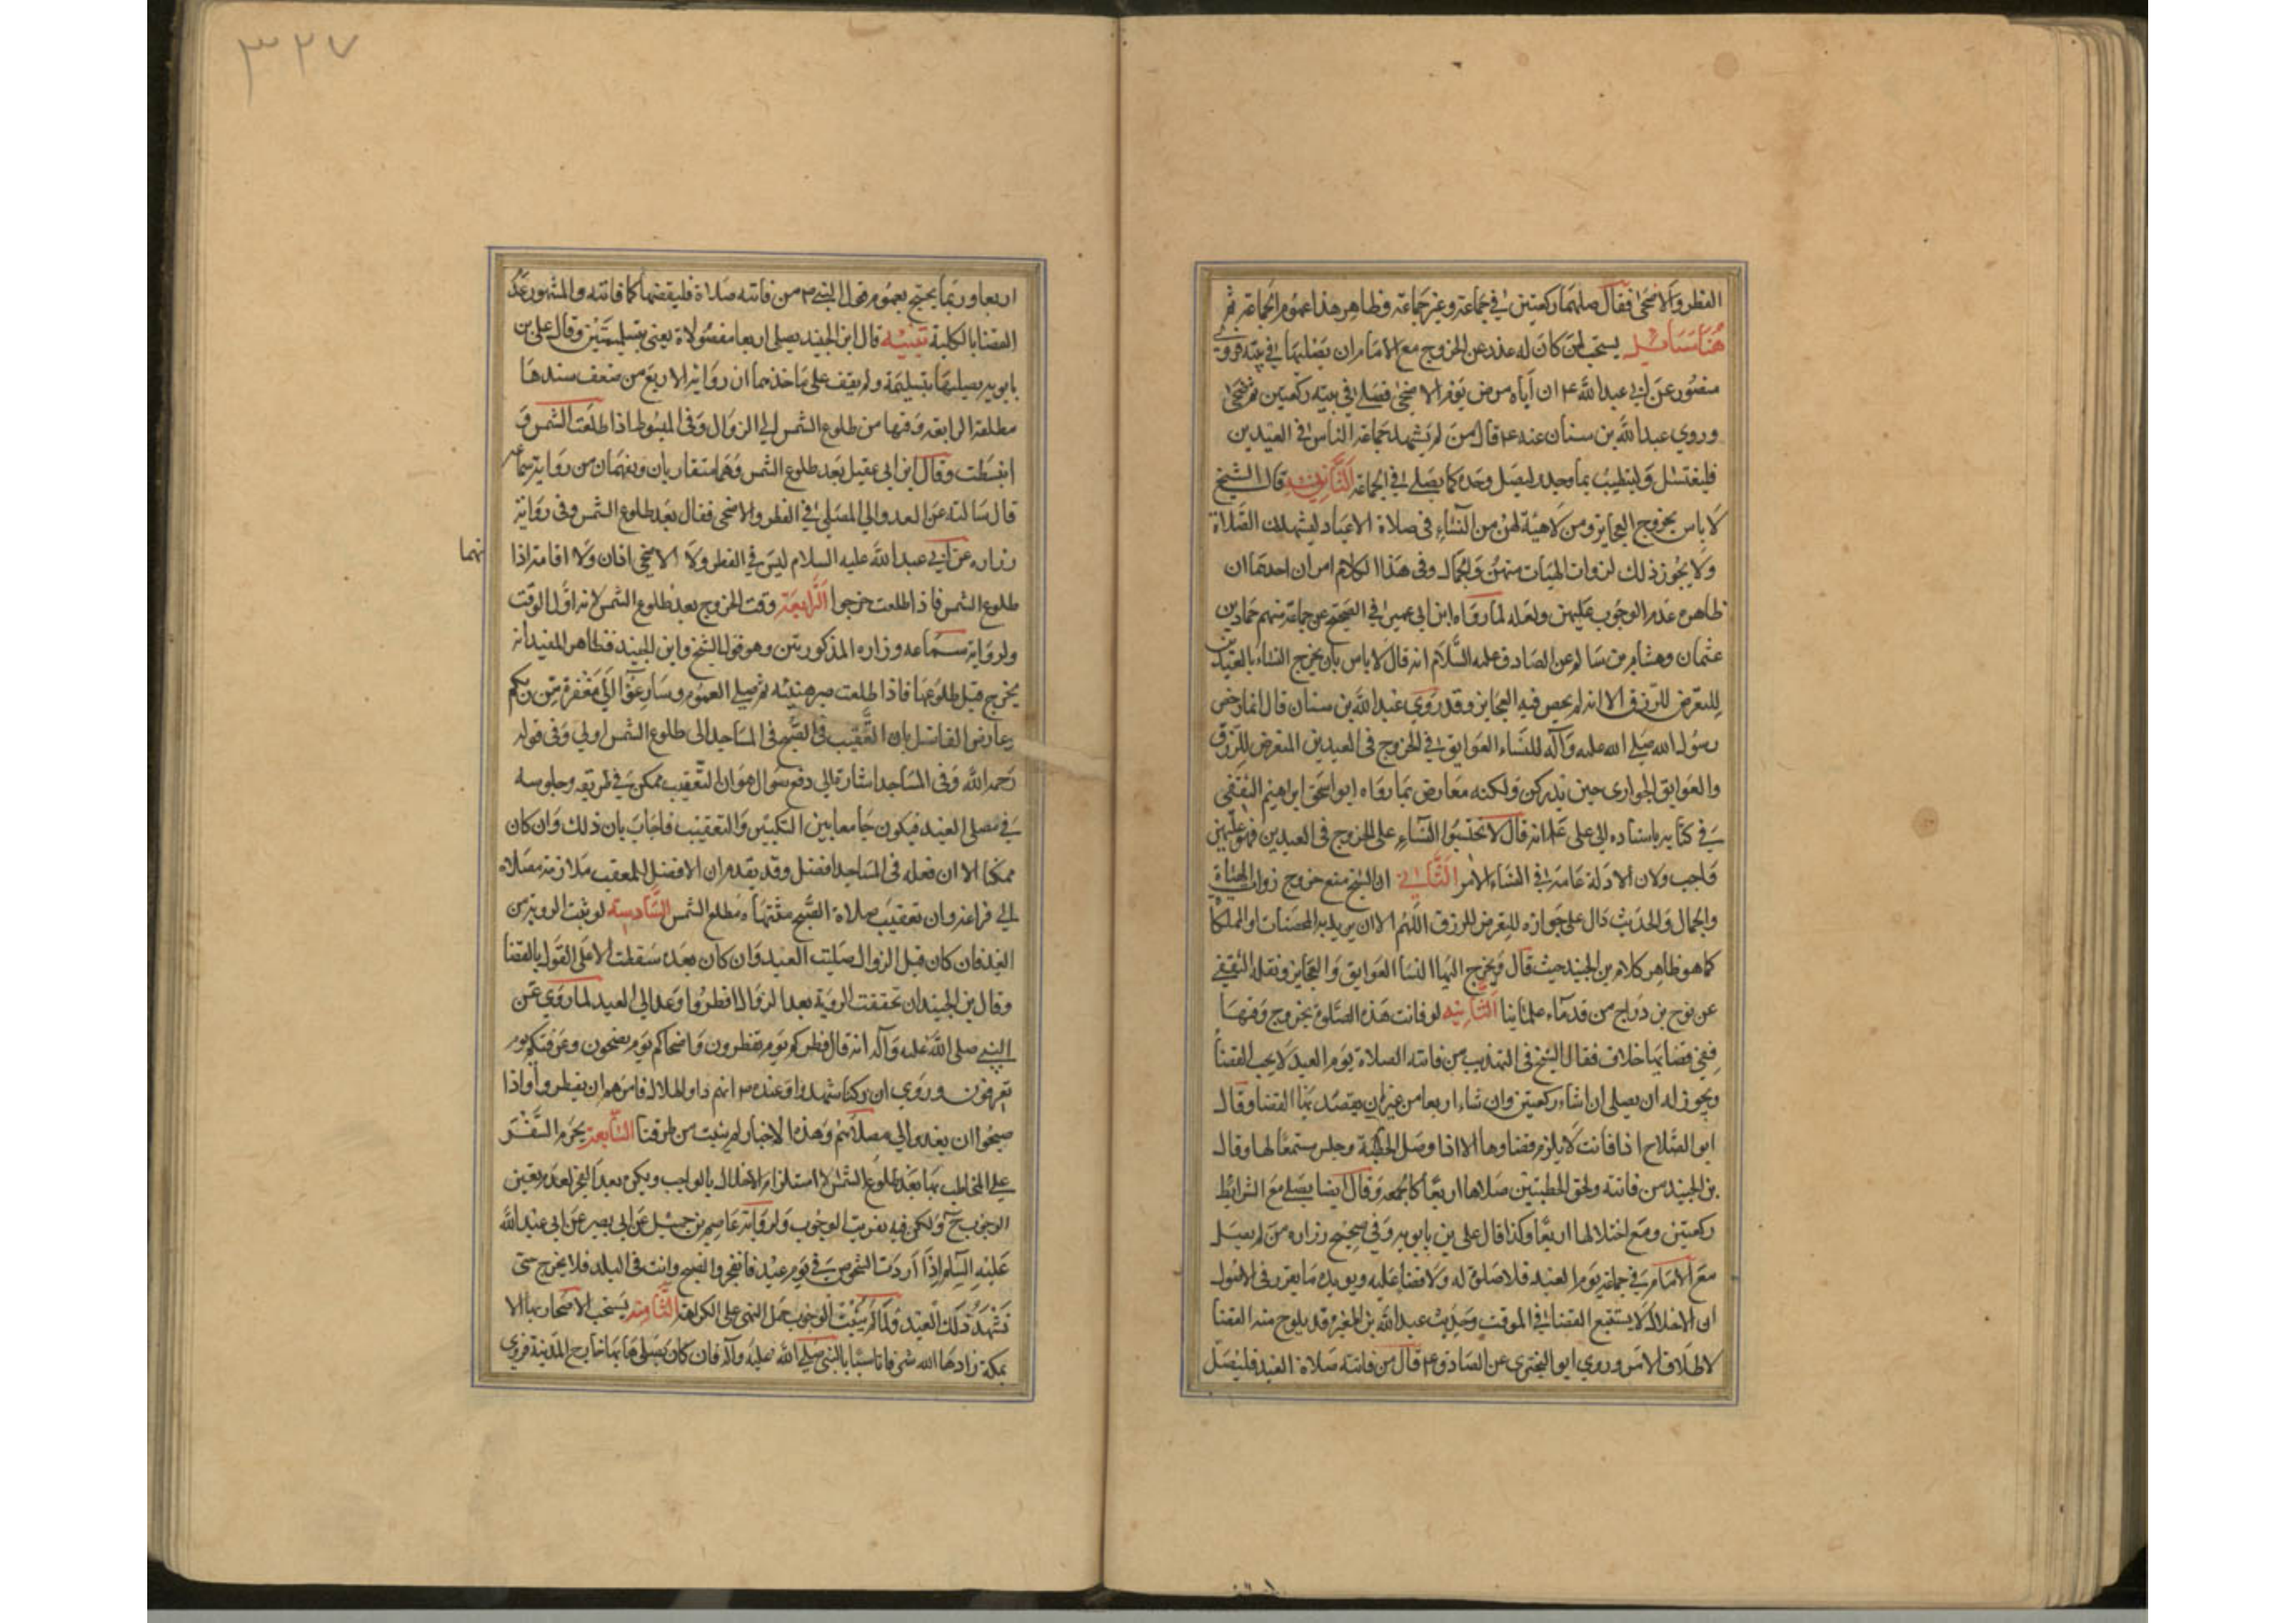 الفطر والاضحى فقال صلهما ركعتين في جماعة وغير جماعة وظاهر هذا عموم الجماعة ثم
هنا مسائل يستحب لمن كان له عذر عن الخروج مع الامام ان يصليهما في بيته فروى
منصور عن ابي عبد الله ع ان اباه مرض يوم الاضحى فصلى في بيته ركعتين ثم ضحى
وروي عبد الله بن سنان عنه ع قال من لم يشهد جماعة الناس في العيدين
فليغتسل وليتطيب بما وجد وليصل وحده كما يصلي في الجماعة الثانية قال الشيخ
لا باس بخروج العجايز ومن لا هيئة لهن من النساء في صلاة الاعياد ليشهدن الصلاة
ولا يجوز ذلك لذوات الهيات منهن والجمال وفي هذا الكلام امران احدهما ان
ظاهره عدم الوجوب عليهن ولعله لما رواه ابن ابي عمير في الصحيح عن جماعة منهم حماد بن
عثمان وهشام بن سالم عن الصادق عليه السلام انه قال لا باس بان يخرج النساء بالعيدين
للتعرض للرزق الا انه لم يخص فيه العجايز وقد روي عبد الله بن سنان قال انما رخص
رسول الله صلى الله عليه وآله للنساء العوايق في الخروج في العيدين المتعرض للرزق
والعوايق الجواري حين يدركن ولكنه معارض بما رواه ابو اسحق ابراهيم الثقفي
في كتابه باسناده الى علي ع انه قال لا تحبسوا النساء على الخروج في العيدين فهو عليهن
واجب ولان الادلة عامة في النساء الامر الثاني ان الشيخ منع خروج ذوات الهيئات
والجمال والحديث دال على جوازه للتعرض للرزق اللهم الا ان يريد به المحصنات والمملكات
كما هو ظاهر كلام بن الجنيد حيث قال ويخرج اليها النسا العوايق والعجايز ونقله الثقفي
عن نوح بن دراج من قدماء علمائنا الثانيه لو فاتت هذه الصلوة بخروج وقتها
ففي قضائها خلاف فقال الشيخ في التهذيب من فاتته الصلاة يوم العيد لا يجب القضأ
ويجوز له ان يصلي ان شاء ركعتين وان شاء اربعا من غير ان يقصد بها القضا وقال
ابو الصلاح اذا فاتت لا يلزم قضاوها الا اذا وصل الخطبة وجلس مستمعا لها وقال
بن الجنيد من فاتته ولحق الخطبتين صلاها اربعا كالجمعه وقال ايضا يصلي مع الشرائط
ركعتين ومع اختلالها اربعا وكذا قال علي بن بابويه وفي صحيح زراره من لم يصل
مع الامام في جماعة يوم العيد فلا صلوة له ولا قضا عليه ويويده ما يقرر في الاصول
ان الاخلال لا يستتبع القضا في الموقت وحديث عبد الله بن المغيره قد يلوح منه القضا
لاطلاق الامر وروي ابو البختري عن الصادق ع قال من فاتته صلاة العيد فليصل
٣٢٧
اربعا وربما يحتج بعموم قول النبي ص من فاتته صلاة فليقضها كما فاتته والمشهور عدم
القضا بالكلية تنبيه قال ابن الجنيد يصلي اربعا مفصولاة يعني بتسليمتين وقال علي بن
بابويه يصليها بتسليمة ولم يقف على ماخذهما ان رواية الاربع من ضعف سندها
مطلقة الرابعة وقتها من طلوع الشمس الى الزوال وفي المبسوط اذا طلعت الشمس و
انبسطت وقال ابن ابي عقيل بعد طلوع الشمس وهما متقاربان ويفهمان من رواية سماعه
قال سالته عن الغدو الي المصلى في الفطر والاضحى فقال بعد طلوع الشمس وفي رواية
زراره عن ابي عبد الله عليه السلام ليس في الفطر ولا الاضحى اذان ولا اقامة اذا
نهما
طلوع الشمس فاذا طلعت خرجوا الرابعة وقت الخروج بعد طلوع الشمس لانه اول الوقت
ولرواية سماعه وزاره المذكورتين وهو قول الشيخ وابن الجنيد فظاهر المفيد انه
يخرج قبل طلوعها فاذا طلعت صبر هنيئه ثم صلى العموم وسارعوا الى مغفرة من ربكم
وعارض الفاضل بان التعقيب في الصبح في المساجد الى طلوع الشمس اولى وفي قوله
رحمه الله وفي المساجد اشارة الى دفع سوال هو ان التعقيب ممكن في طريقه وجلوسه
في مصلى العيد فيكون جامعا بين التكبير والتعقيب فاجاب بان ذلك وان كان
ممكنا الا ان فعله في المساجد افضل وقد تقدم ان الافضل للمعقب ملازمة مصلاه
الى فراغه وان تعقيب صلاة الصبح منتهاه مطلع الشمس السادسة لو ثبت الروية من
الغد فان كان قبل الزوال صليت العيد وان كان بعده سقطت الا على القول بالقضا
وقال بن الجنيد ان تحققت الروية بعد الزوال افطروا وغدا الى العيد لما روي عن
النبي صلى الله عليه وآله انه قال فطركم يوم تفطرون واضحاكم يوم تضحون وعرفتكم يوم
تعرفون وروي ان ركبا شهدوا عنده ص انهم راو الهلال فامرهم ان يفطروا واذا
صبحوا ان يغدوا الى مصلاهم وهذه الاخبار لم يثبت من طرقنا السابعة يحرم السفر
على المخاطب بها بعد طلوع الشمس لاستلزام الاخلال بالواجب ويكره بعد الفجر لعدم يقين
الوجوب ح ولكن فيه تفريت الوجوب ولرواية عاصم بن حميد عن ابي بصير عن ابي عبد الله
عليه السلم اذا اردت الشخوص في يوم عيد فانفجر والصبح وانت في البلد فلا يخرج حتى
تشهد ذلك العيد ولما لم يثبت الوجوب حمل النهي على الكراهة الثامنه يستحب الاصحار بها الا
بمكة زادها الله شرفا تاسيا بالنبي صلى الله عليه وآله فان كان يصلي ها بها خارج المدينة فروي